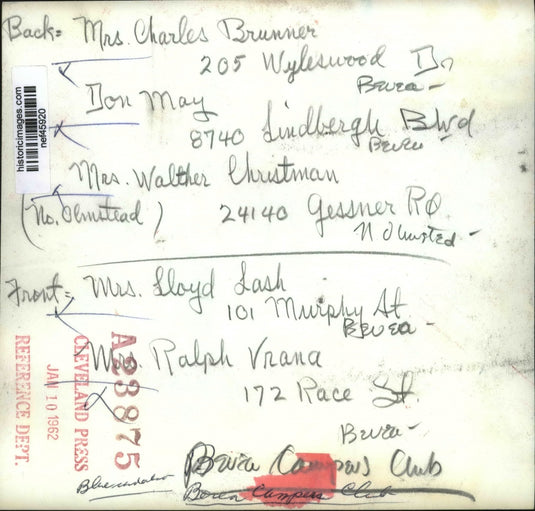 Back= Mrs. Charles Brunner
205 Wyleswood Dr
Berea -
Don May
8740 Lindbergh Blvd
Berea
Mrs. Walther Christman
(No. Olmstead) 24140 Gessner RD.
N Olmsted -
Front= Mrs. Lloyd Lash
101 Murphy St
Berea -
Mrs. Ralph Vrana
172 Race St.
Berea -
Berea Campers Club
Berea Campers Club
historicimages.com
nef45920
A23875
CLEVELAND PRESS
JAN 10 1962
REFERENCE DEPT.